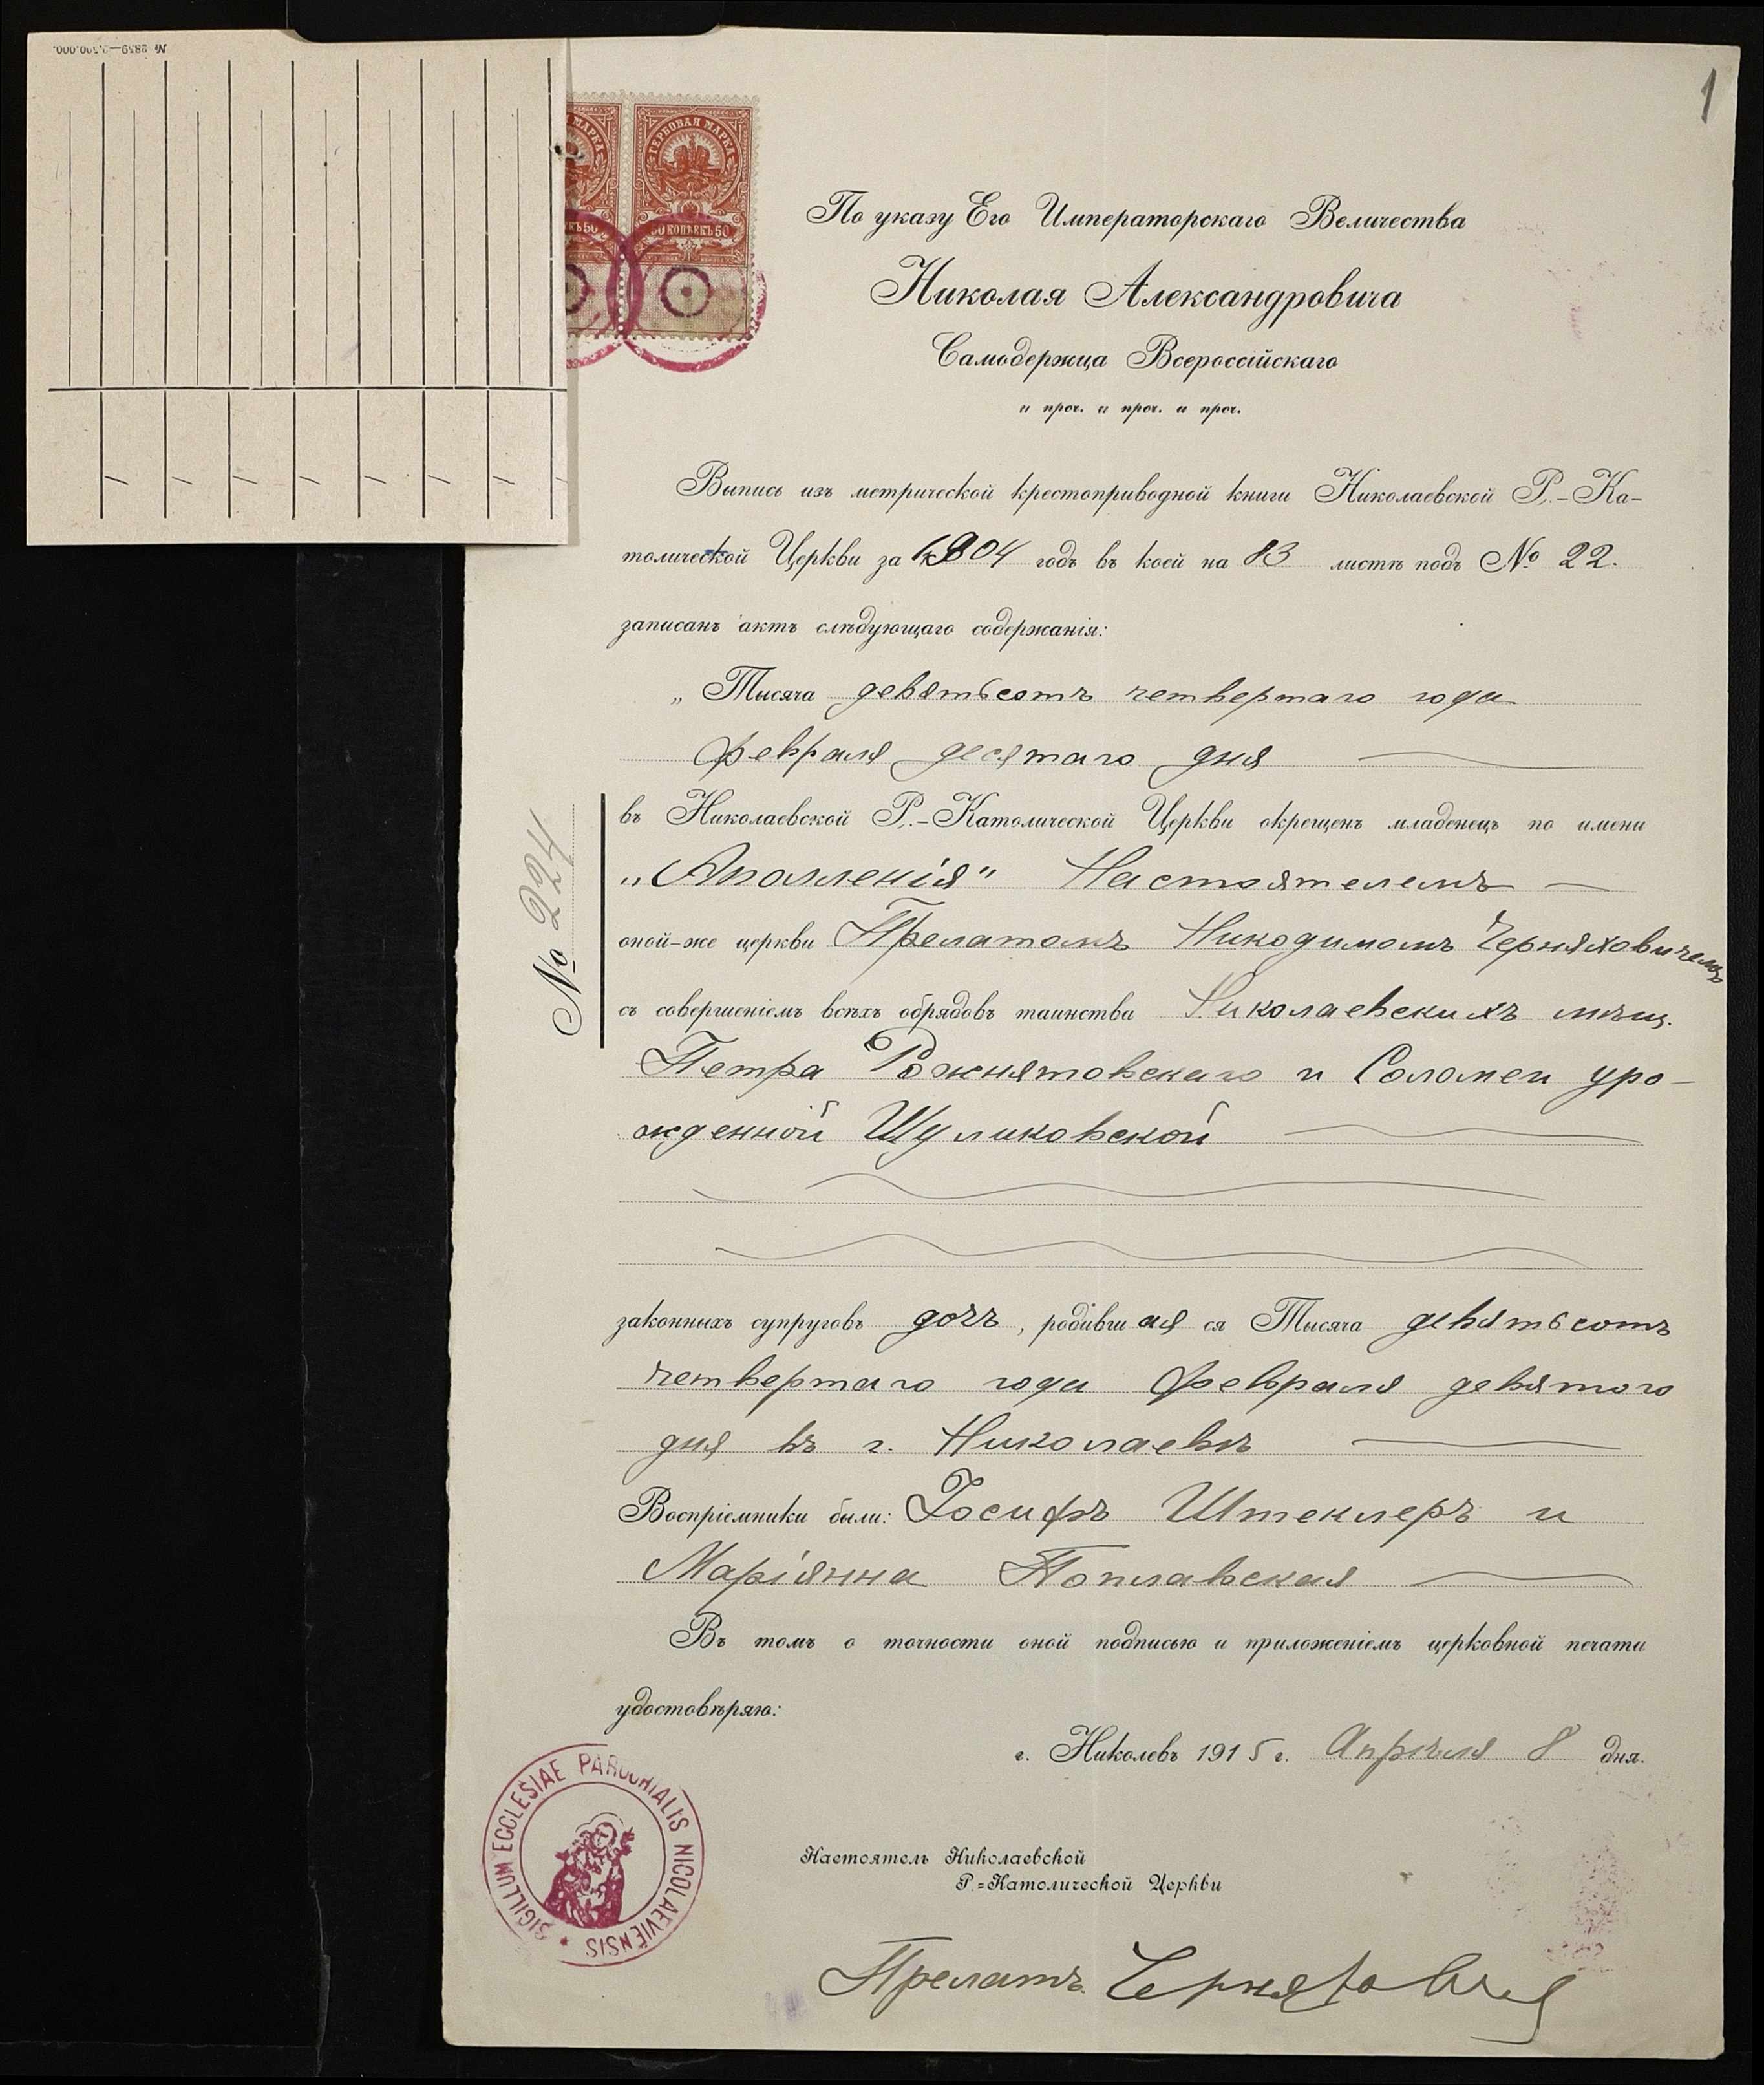 № 2859—2.500.000.
1
ГЕРБОВАЯ МАРКА
50 КОПѢЕКЪ 50
По указу Его Императорскаго Величества
Николая Александровича
Самодержца Всероссійскаго
и проч. и проч. и проч.
Выпись изъ метрической крестоприводной книги Николаевской Р.-Ка-
толической Церкви за 1904 годъ въ коей на 83 листѣ подъ № 22.
записанъ актъ слѣдующаго содержанія:
„ Тысяча девятьсотъ четвертаго года
февраля десятаго дня
въ Николаевской Р.-Католической Церкви окрещенъ младенецъ по имени
„Аполленія“ Настоятелемъ
оной-же церкви Прелатомъ Никодимомъ Черняховичемъ
съ совершеніемъ всѣхъ обрядовъ таинства Николаевскихъ мѣщ.
Петра Рожнятовскаго и Соломеи уро-
жденной Шуликовской
законныхъ супруговъ дочь, родившаяся Тысяча девятьсотъ
четвертаго года февраля девятого
дня въ г. Николаевѣ
Воспріемники были: Іосифъ Штеклеръ и
Маріянна Поплавская
Въ томъ о точности оной подписью и приложеніемъ церковной печати
удостовѣряю:
г. Николевъ 1915 г. Апрѣля 8 дня.
Настоятель Николаевской
Р.=Католической Церкви
Прелатъ Черняхович
№ 224
SIGILLUM ECCLESIAE PAROCHIALIS NICOLAEVIENSIS